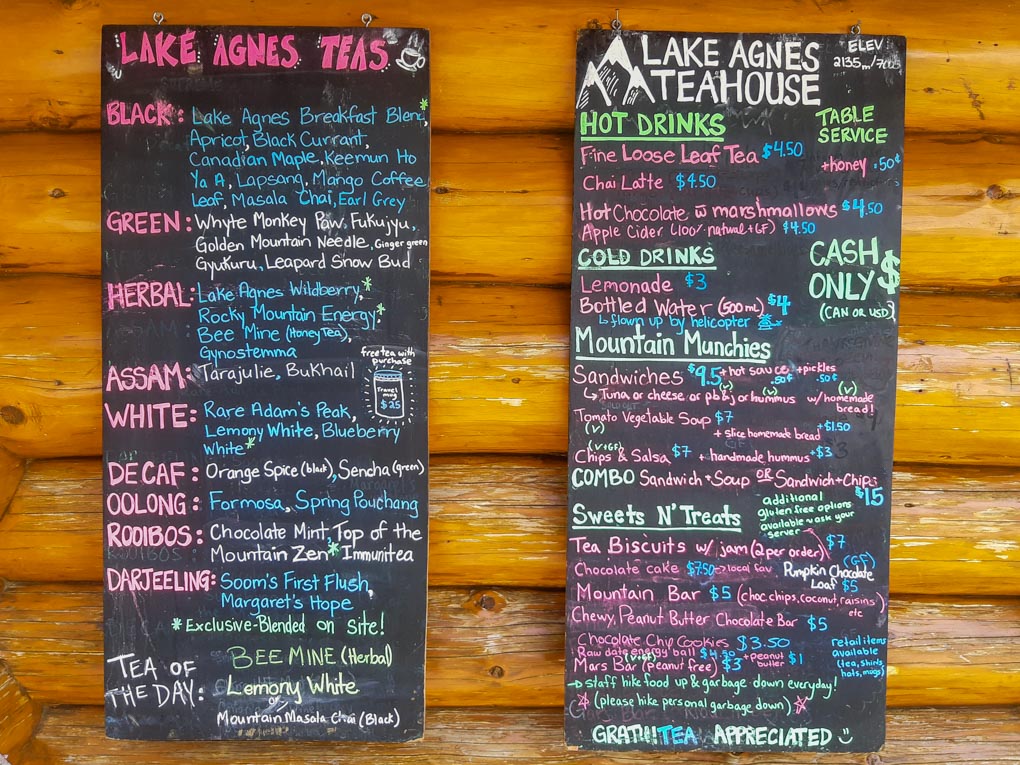 LAKE AGNES TEAS
BLACK: Lake Agnes Breakfast Blend,*
Apricot, Black Currant,
Canadian Maple, Keemun Ho
Ya A, Lapsang, Mango Coffee
Leaf, Masala Chai, Earl Grey
GREEN: Whyte Monkey Paw, Fukujyu,
Golden Mountain Needle, Ginger green
Gyukuru, Leapard Snow Bud
HERBAL: Lake Agnes Wildberry,*
Rocky Mountain Energy,*
Bee Mine (Honey Tea),
Gynostemma
free tea with
purchase
Travel
mug
$25
ASSAM: Tarajulie, Bukhail
WHITE: Rare Adam's Peak,
Lemony White, Blueberry
White*
DECAF: Orange Spice (black), Sencha (green)
OOLONG: Formosa, Spring Pouchang
ROOIBOS: Chocolate Mint, Top of the
Mountain Zen* Immunitea
DARJEELING: Soom's First Flush,
Margaret's Hope
*Exclusive-Blended on site!
TEA OF
THE DAY:
BEE MINE (Herbal)
Lemony White
or
Mountain Masala Chai (Black)
LAKE AGNES
TEAHOUSE
ELEV
2135m/
HOT DRINKS
TABLE
SERVICE
Fine Loose Leaf Tea $4.50
+honey .50¢
Chai Latte $4.50
Hot Chocolate w̄ marshmallows $4.50
Apple Cider (100% natural + GF) $4.50
COLD DRINKS
CASH $
ONLY
(CAN OR USD)
Lemonade $3
Bottled Water (500 mL) $4
↳ flown up by helicopter
Mountain Munchies
Sandwiches $9.5 + hot sauce .50¢ + pickles .50¢
↳ Tuna or cheese or pb & j (v) or hummus (v) w/ homemade (v)
bread!
Tomato Vegetable Soup $7
(v) + slice homemade bread +$1.50
(V+GF)
Chips & Salsa $7 + handmade hummus +$3
COMBO Sandwich + Soup OR Sandwich + Chips
$15
additional
gluten free options
available ~ ask your
server
Sweets N' Treats
Tea Biscuits w/ jam (2 per order) $7
Chocolate cake $7.50 → local fav
(GF)
Pumpkin Chocolate
Loaf $5
Mountain Bar $5 (choc.chips, coconut, raisins)
etc
Chewy, Peanut Butter Chocolate Bar $5
Chocolate Chip Cookies $3.50
Raw date energy ball $4.50
(V+GF)
+ peanut
butter $1
Mars Bar (peanut free) $3
retail items
available
(tea, shirts,
hats, mugs)
→ staff hike food up & garbage down everyday!
(please hike personal garbage down)
GRATUITEA APPRECIATED